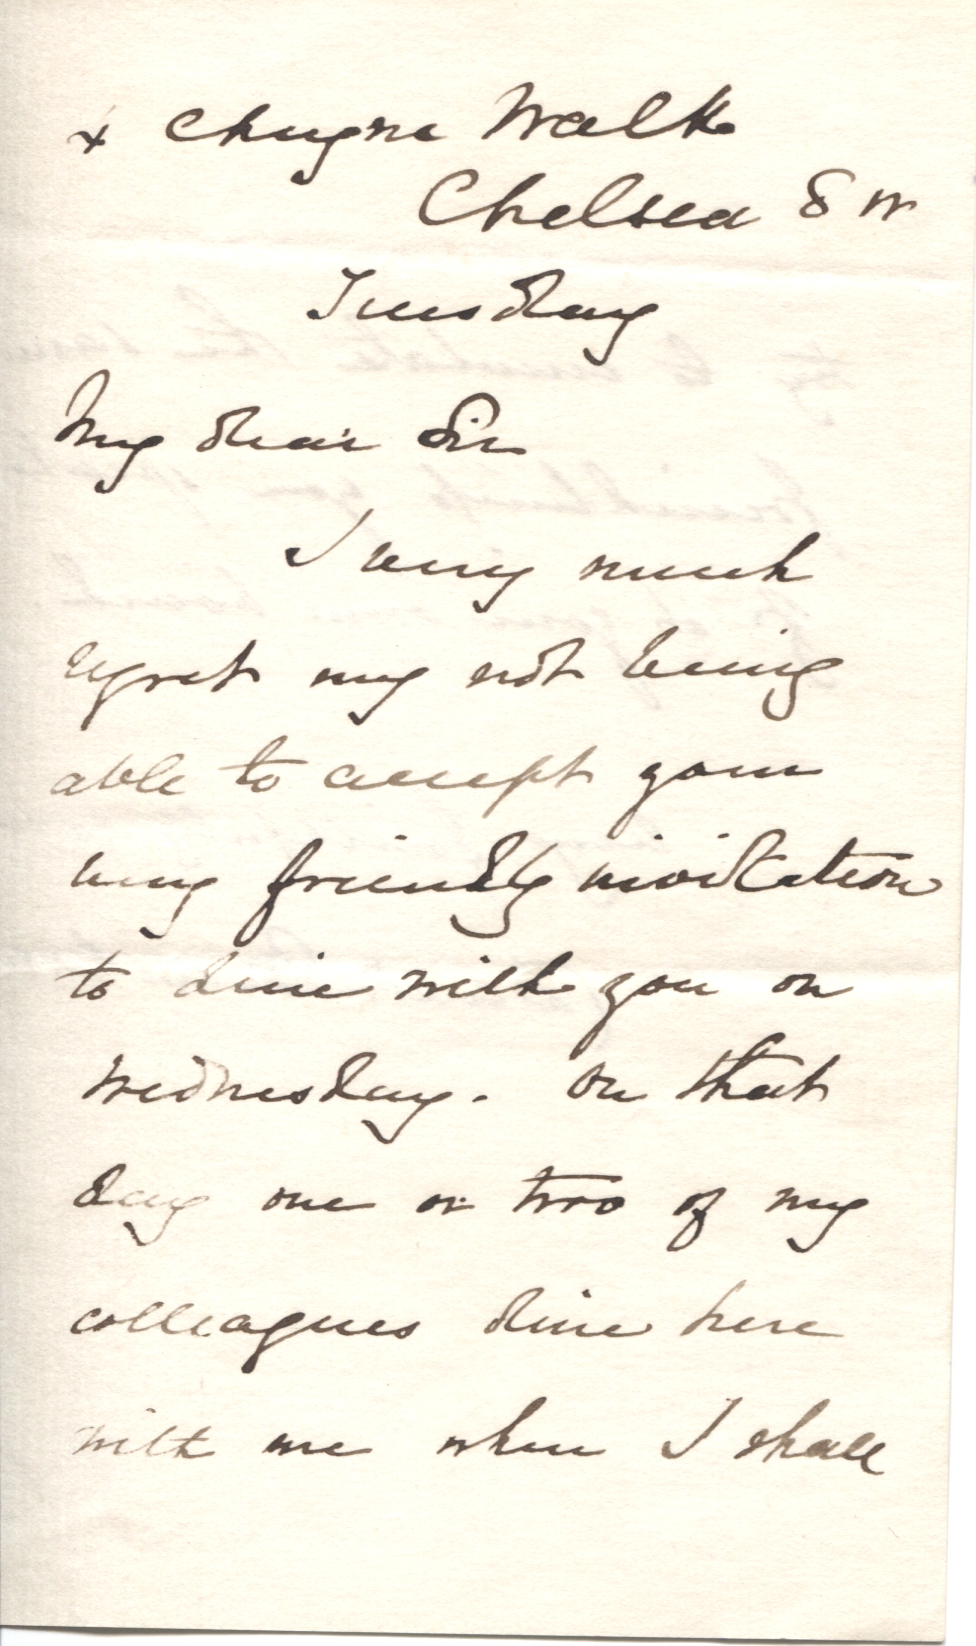 4 Cheyne Walk
Chelsea S W
Tuesday
My dear Sir
I very much
regret my not being
able to accept your
very friendly invitation
to dine with you on
Wednesday. On that
day one or two of my
colleagues dine here
with me when I shall